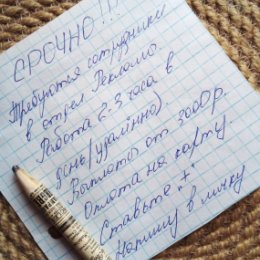 СРОЧНО!!!
Требуются сотрудники
в отдел Реклама.
Работа 2-3 часа в
день(удалённо).
Выплаты от 3000р.
Оплата на карту
Ставьте "+"
Напишу в личку